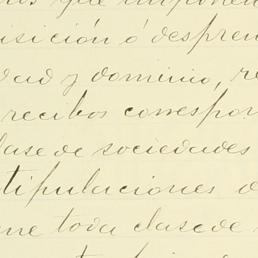 que imponen
isición ó despren
dad y dominio, re
recibos correspon
lase de sociedades
tipulaciones d
ne toda clase de